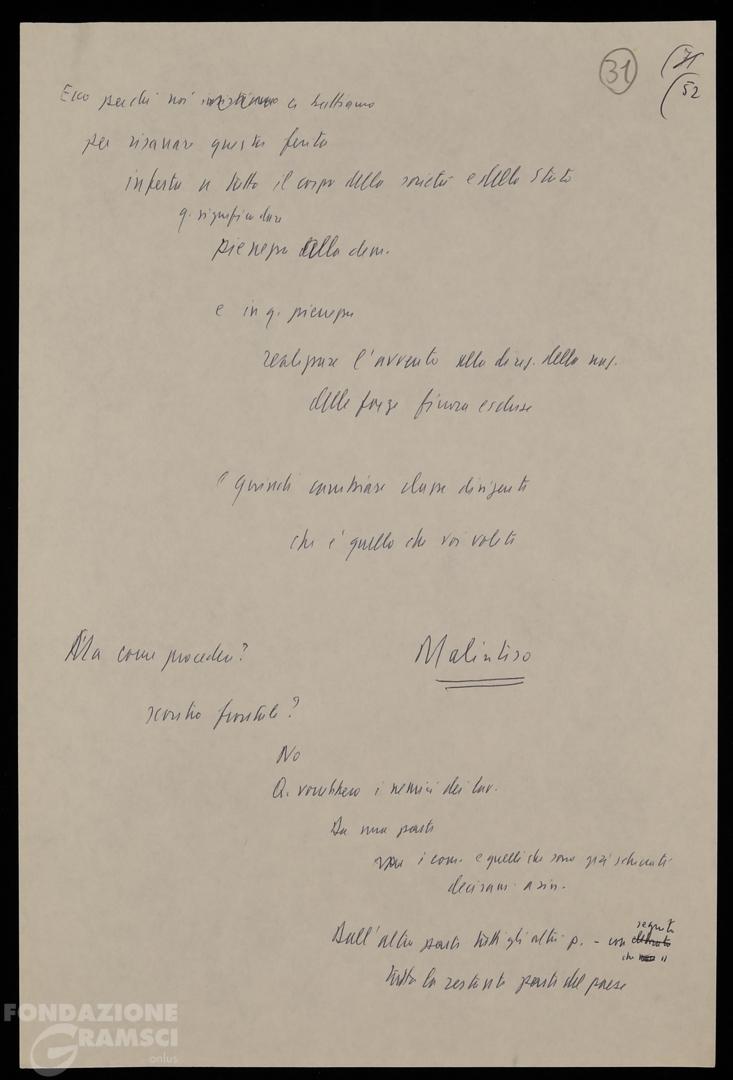 31
51
52
Ecco perché noi insistiamo ci battiamo
per risanare questa ferita
inferta a tutto il corpo della società e dello Stato
q. significa dare
pienezza alla dem.
e in q. pienezza
realizzare l'avvento alla direz. della naz.
delle forze finora escluse
E quindi cambiare classe dirigente
che è quello che voi volete
Ma come procedere?
Malinteso
scontro frontale?
No
Q. vorrebbero i nemici dei lav.
Da una parte
i com. e quelli che sono già schierati
decisam. a sin.
Dall'altra parte tutti gli altri p. - con
seguito
che
tutta la restante parte del paese
FONDAZIONE
GRAMSCI
onlus